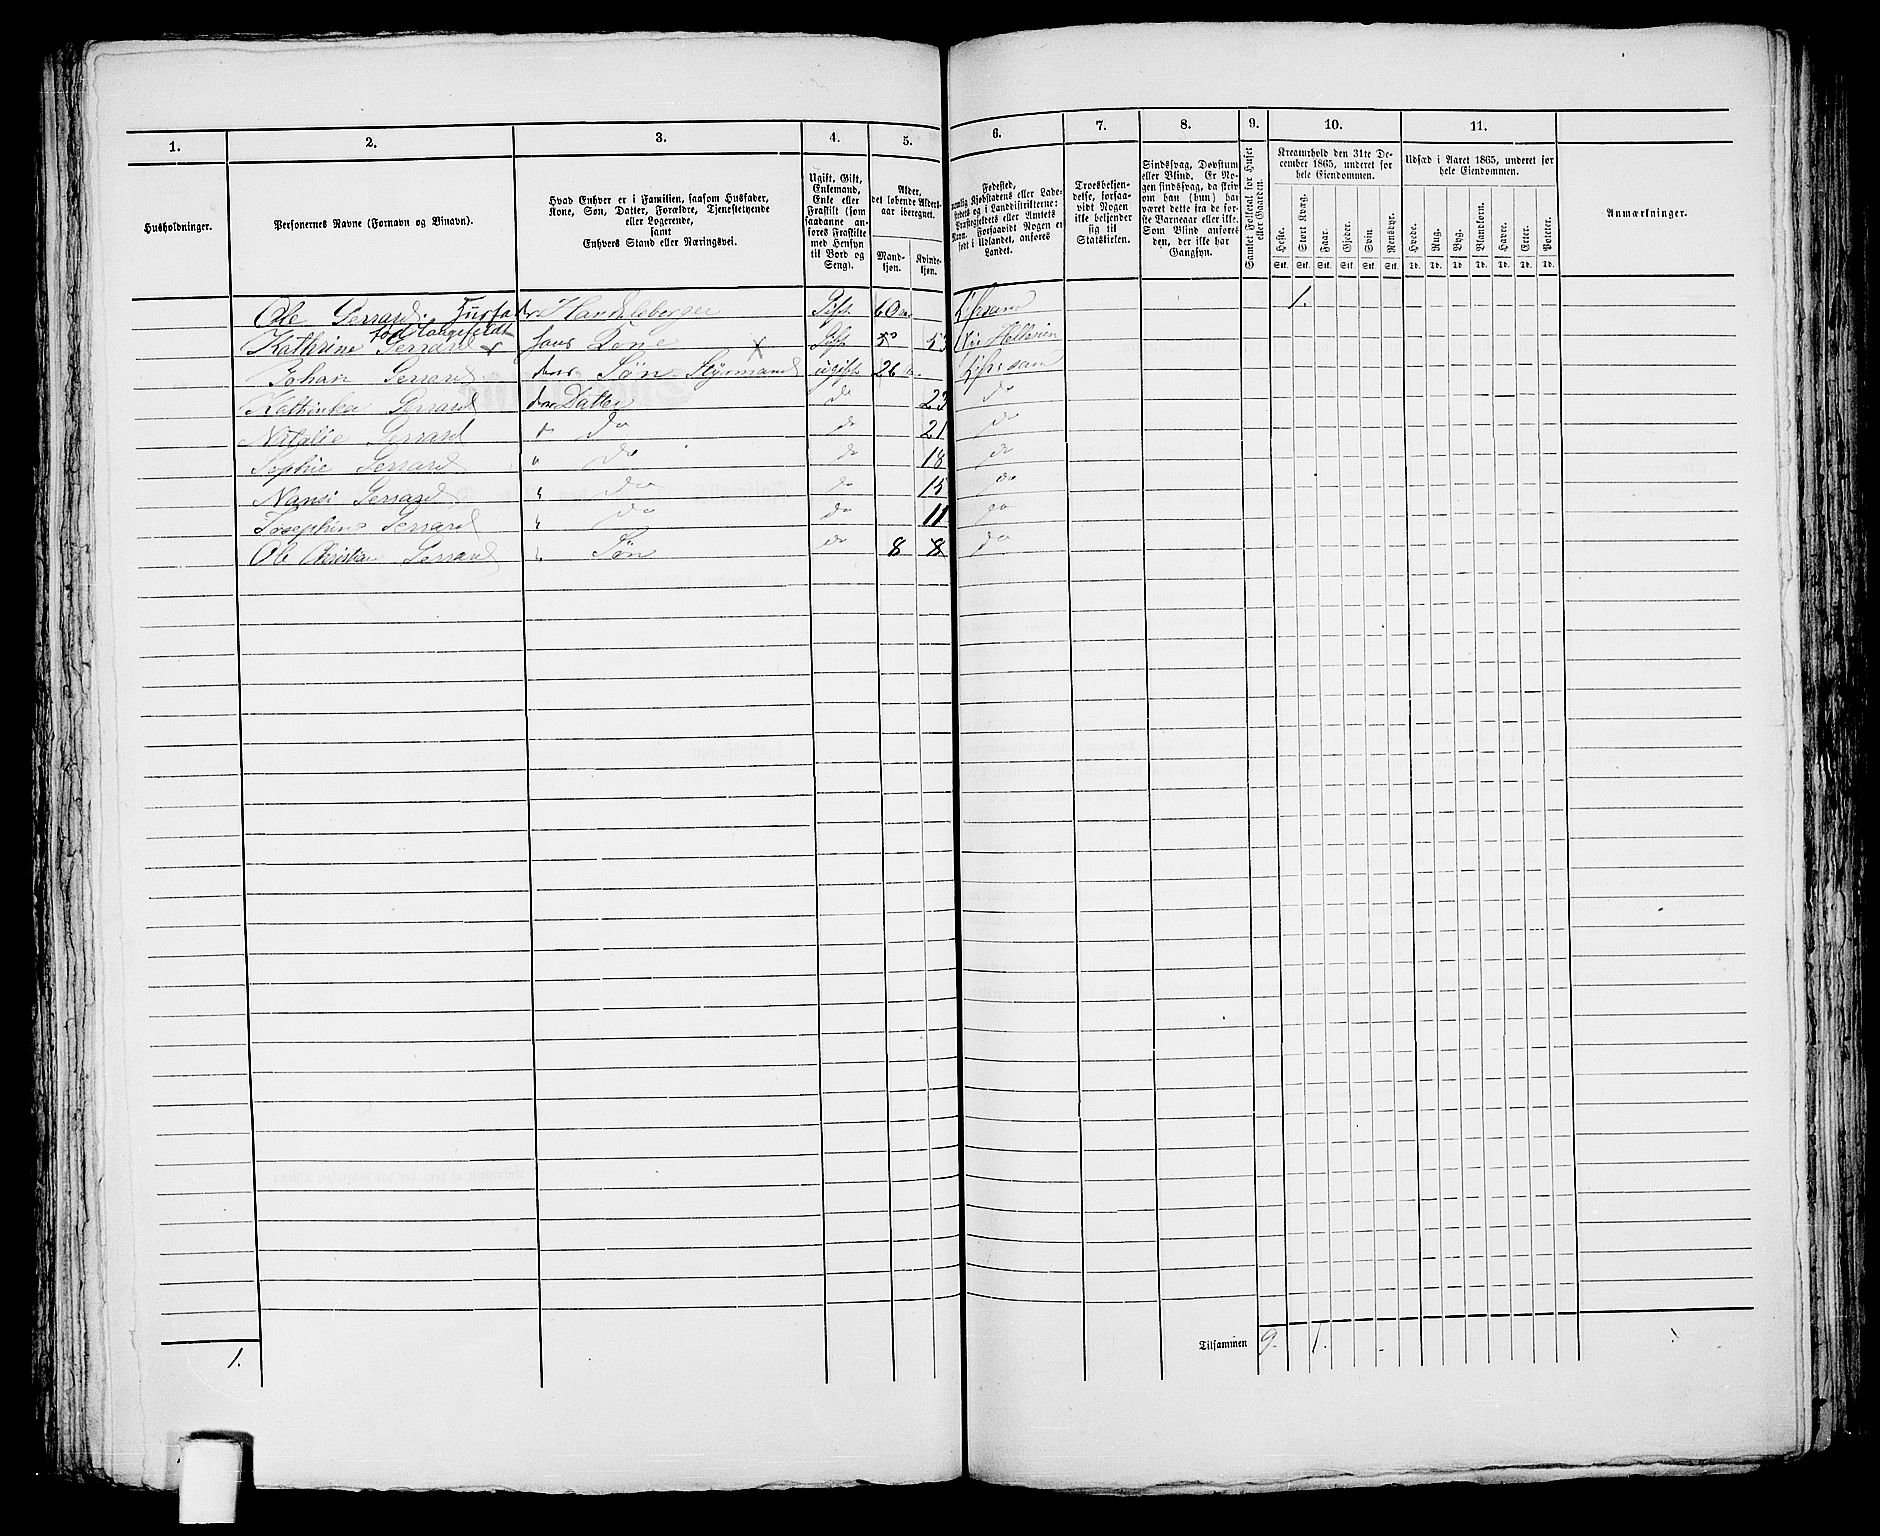 1. 2. 3. 4. 5. 6. 7. 8. 9. 10. 11.
Husholdninger.
Personernes Navne (Fornavn og Binavn).
Hvad Enhver er i Familien, saasom Husfader,
Kone, Søn, Datter, Forældre, Tjenestetyende
eller Logerende,
samt
Enhvers Stand eller Næringsvei.
Ugift, Gift,
Enkemand,
Enke eller
Fraskilt (som
saadanne an-
føres Fraskilte
med Hensyn
til Bord og
Seng).
Alder,
det løbende Alders-
aar iberegnet.
Mand-
kjøn.
Kvinde-
kjøn.
Fødested,
nemlig Kjøbstadens eller Lade-
stedets og i Landdistrikterne:
Præstegjeldets eller Amtets
Navn. Forsaavidt Nogen er
født i Udlandet, anføres
Landet.
Troesbekjen-
delse, forsaa-
vidt Nogen
ikke bekjender
sig til
Statskirken.
Sindssvag, Døvstum
eller Blind. Er No-
gen sindssvag, da skriv
om han (hun) har
været dette fra de før-
ste Barneaar eller ikke.
Som Blind anføres
den, der ikke har
Gangsyn.
Samlet Folketal for Huset
eller Gaarden.
Kreaturhold den 31te De-
cember 1865, underet for
hele Eiendommen.
Heste. Stort Kvæg. Faar. Gjeder. Svin. Rensdyr.
Stk. Stk. Stk. Stk. Stk. Stk.
Udsæd i Aaret 1865, underet for
hele Eiendommen.
Hvede. Rug. Byg. Blandkorn. Havre. Erter. Poteter.
Td. Td. Td. Td. Td. Td. Td.
Anmærkninger.
Ole Gerrard. Husfader Handelsborger Gift 60 1.
fød Langefeldt
Kathrine Gerrard hans Kone X Gift 53 53
Johan Gerrard deres Søn Styrmand ugift 26
Kathinka Gerrard deres Datter do 23 do
Natalie Gerrard " do do 21 do
Sophie Gerrard " do do 18 do
Nansi Gerrard " do do 15 do
Josephine Gerrard " do do 11 do
Ole Christian Gerrard " Søn do 8 8 do
Tilsammen 9. 1.
1.